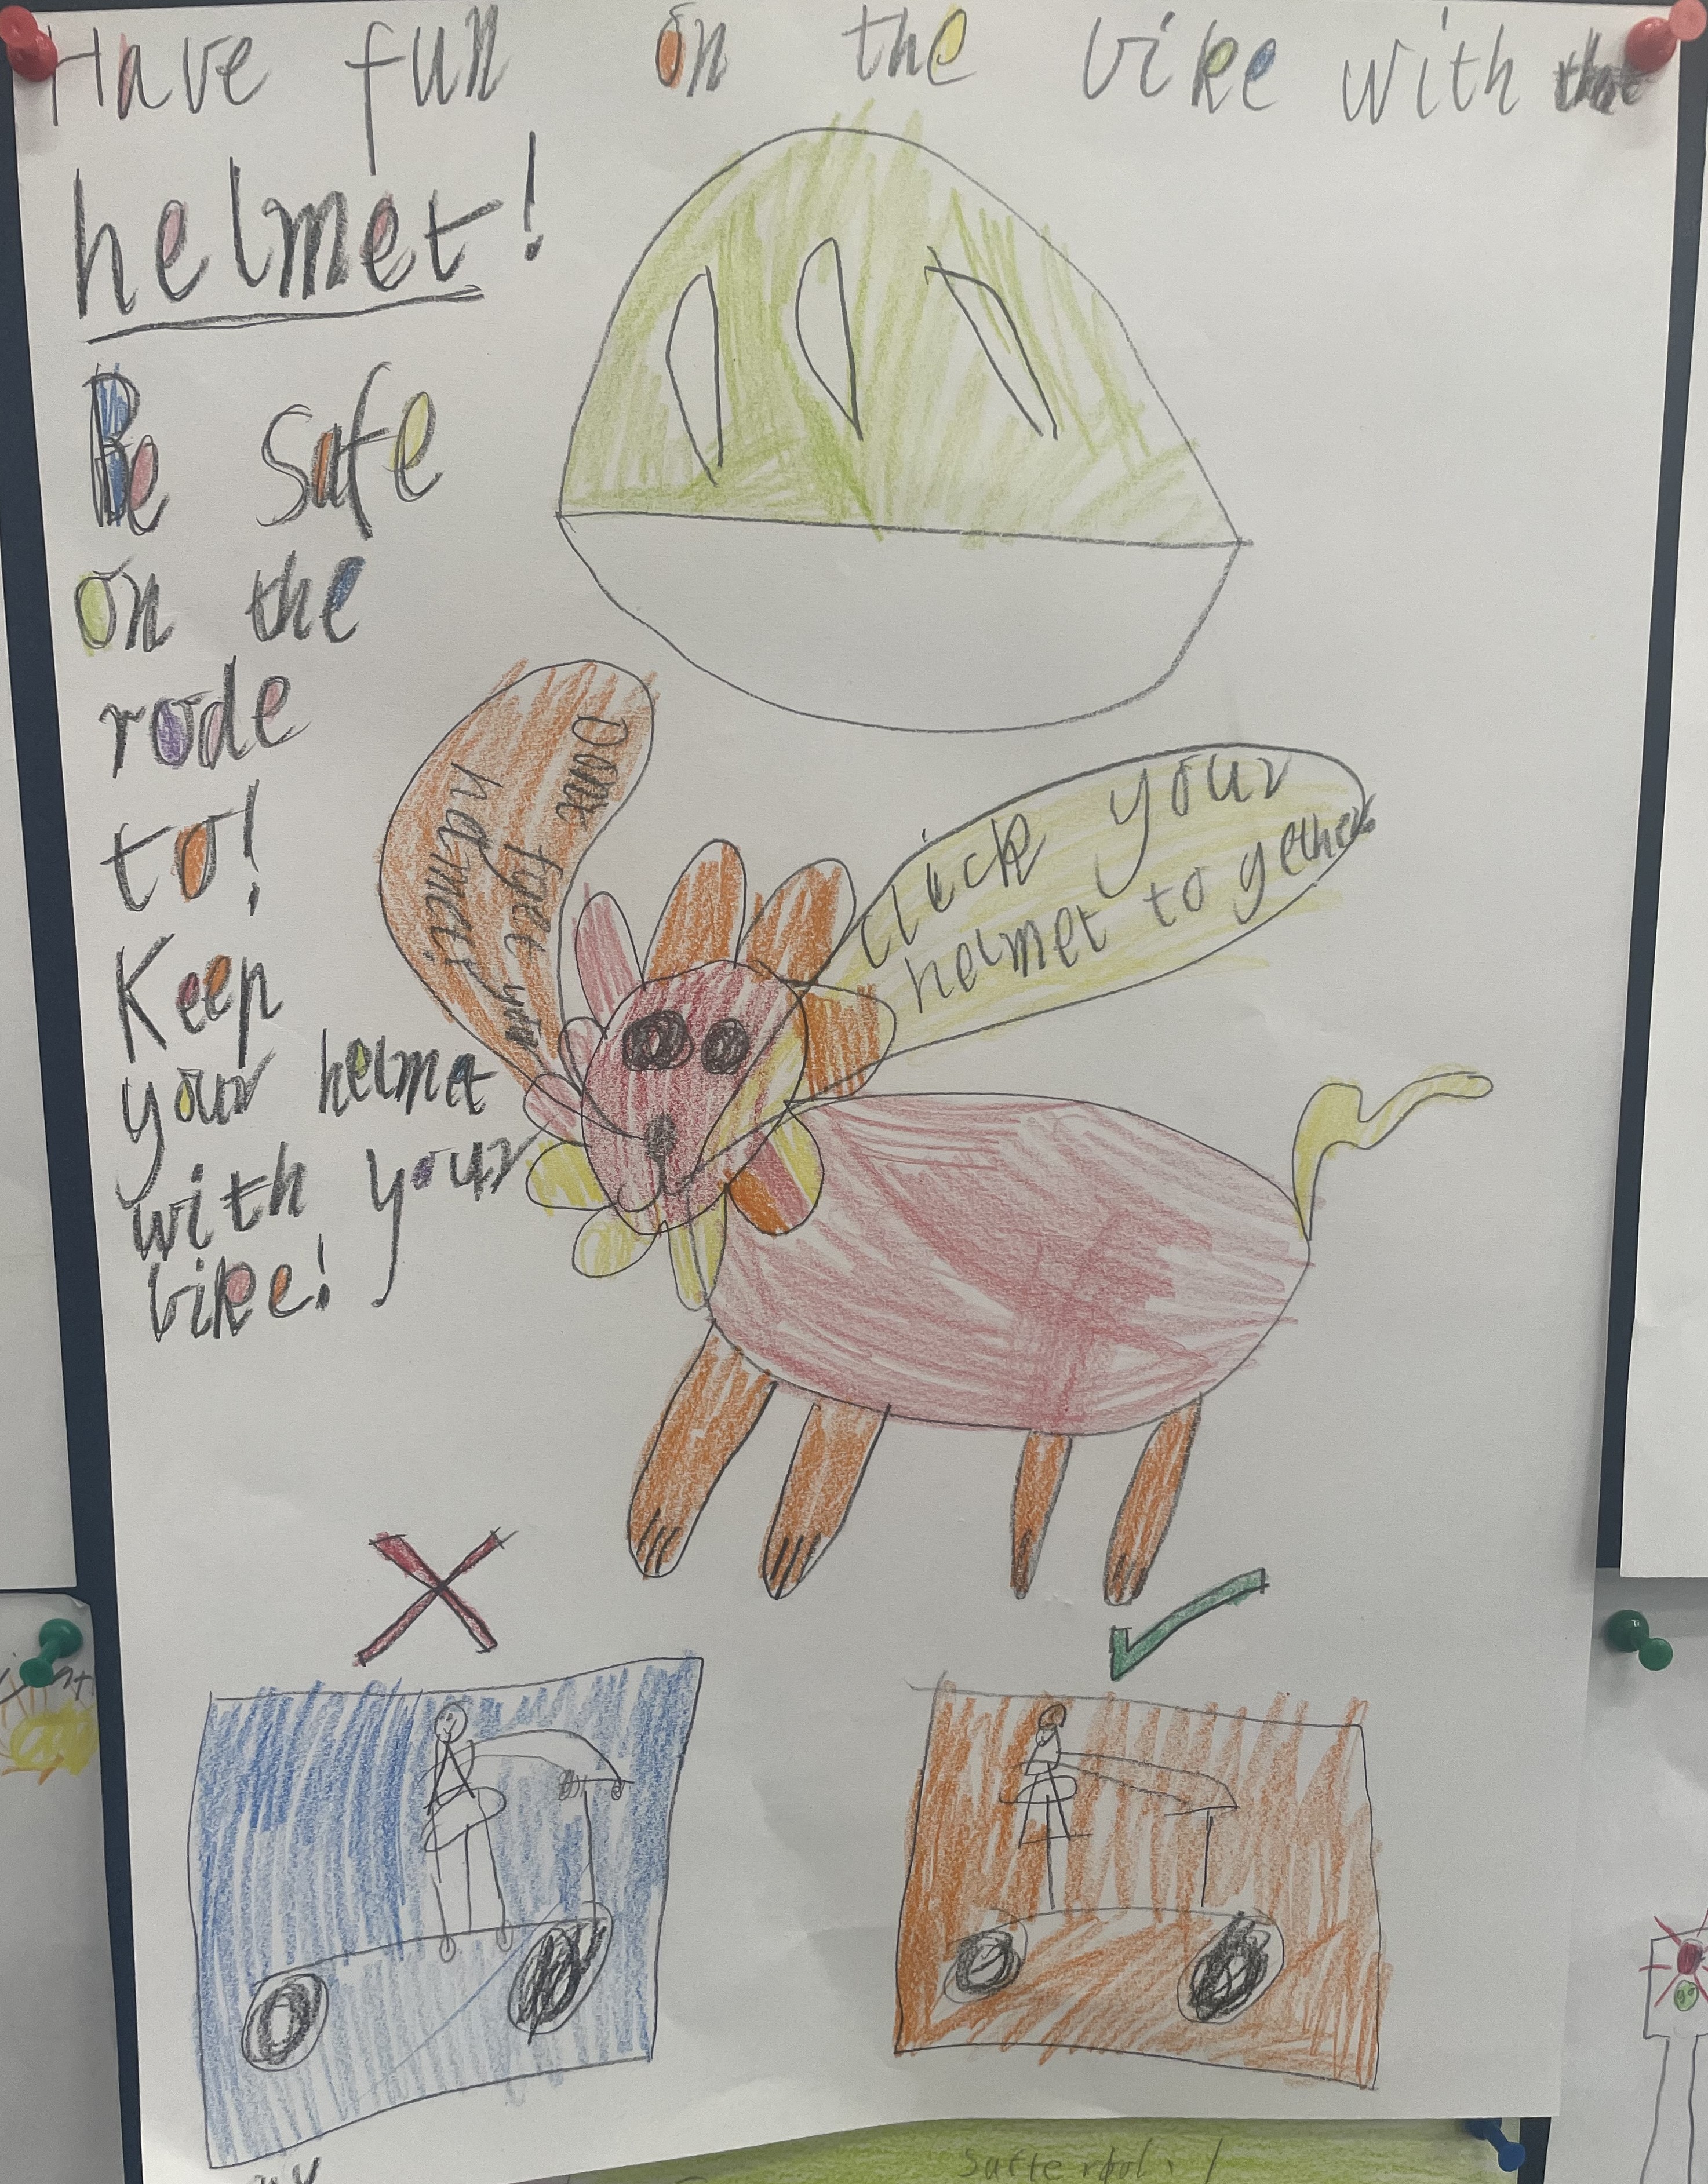 Have fun on the bike with that
helmet!
Be safe
on the
rode
to!
Keep
your helmet
with your
bike!
Dont fget your
halmet!
click your
helmet to gether
safte